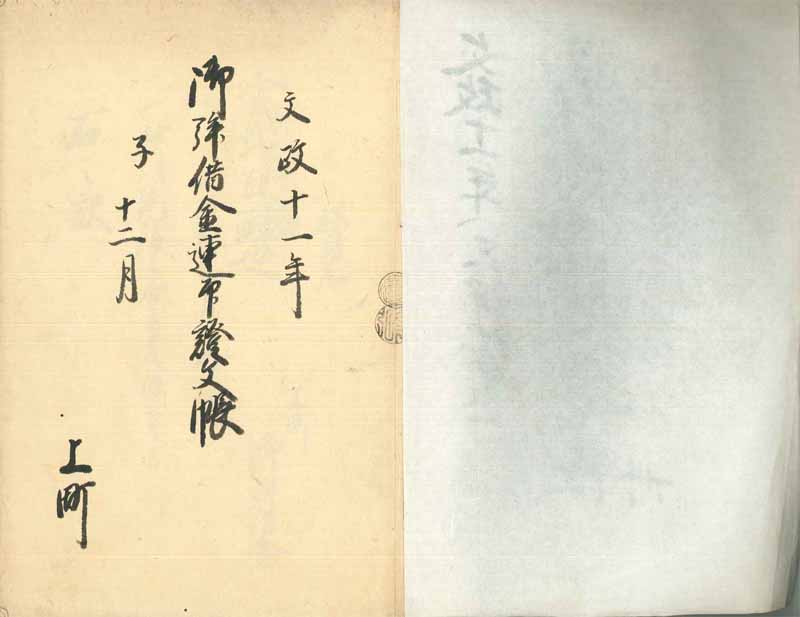 文政十一年
御拝借金連印證文帳
子 十二月
上町